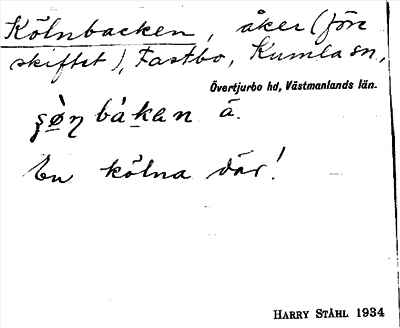 Kölnbacken, åker (före
skiftet), Fastbo, Kumla sn,
Övertjurbo hd, Västmanlands län.
bákan ä.
En kölna där!
HARRY STÅHL 1934